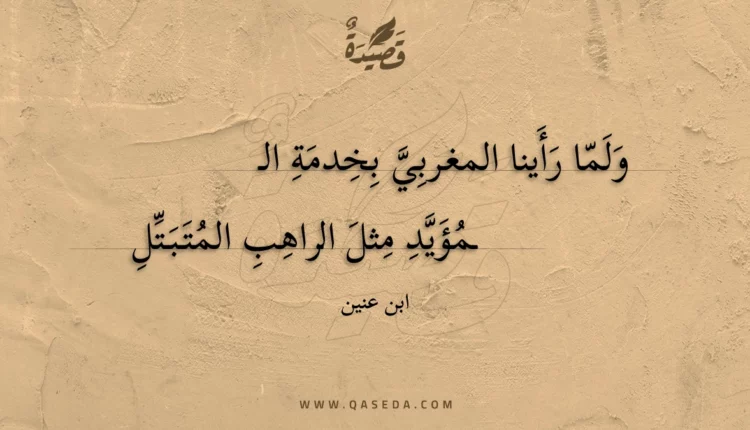 قَصِيدَةٌ
وَلَمّا رَأَينا المغربِيَّ بِخِدمَةِ الـ
ـمُؤَيَّدِ مِثلَ الراهِبِ المُتَبَتِّلِ
ابن عنين
WWW.QASEDA.COM